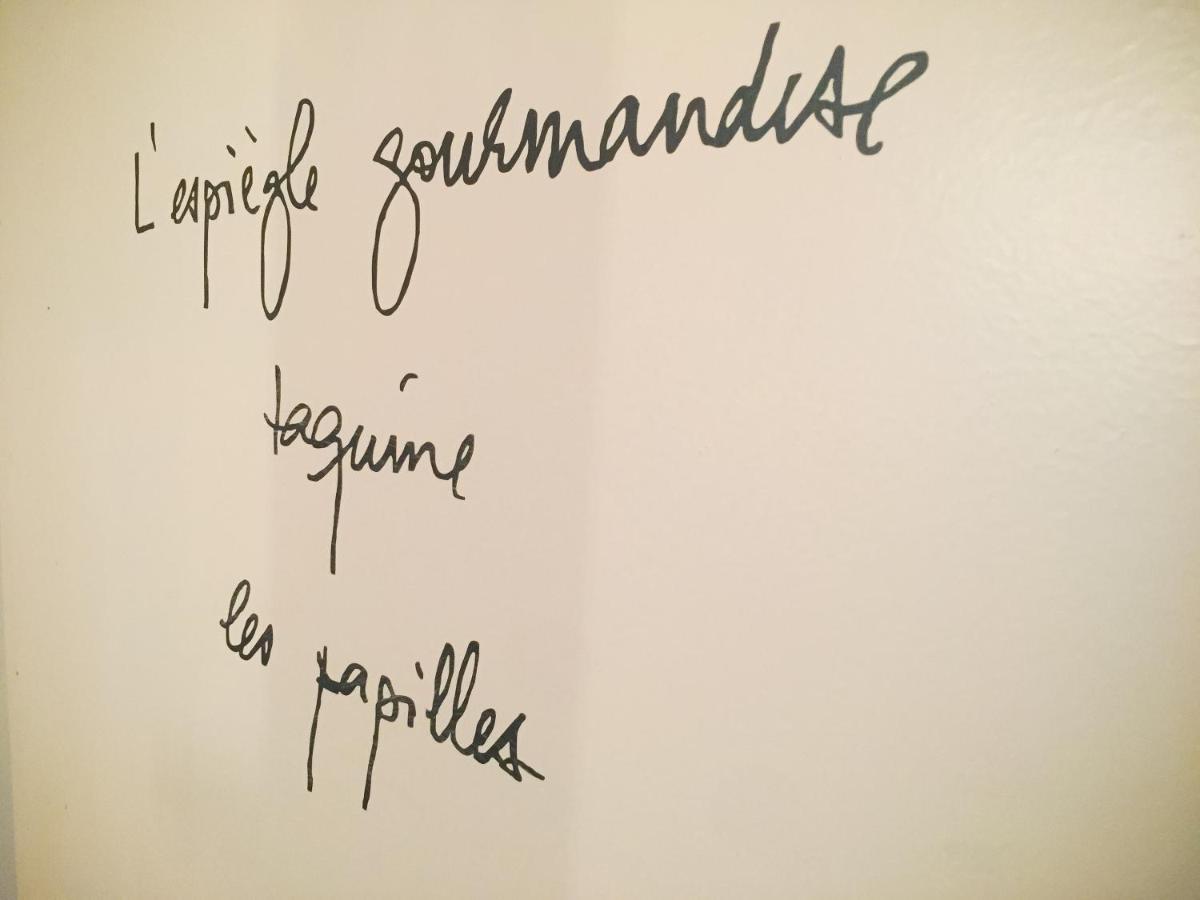 L'espiègle gourmandise
taquine
les papilles